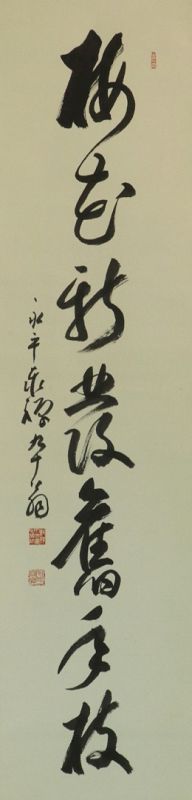 梅花新發舊年枝
永平泰禅九十翁